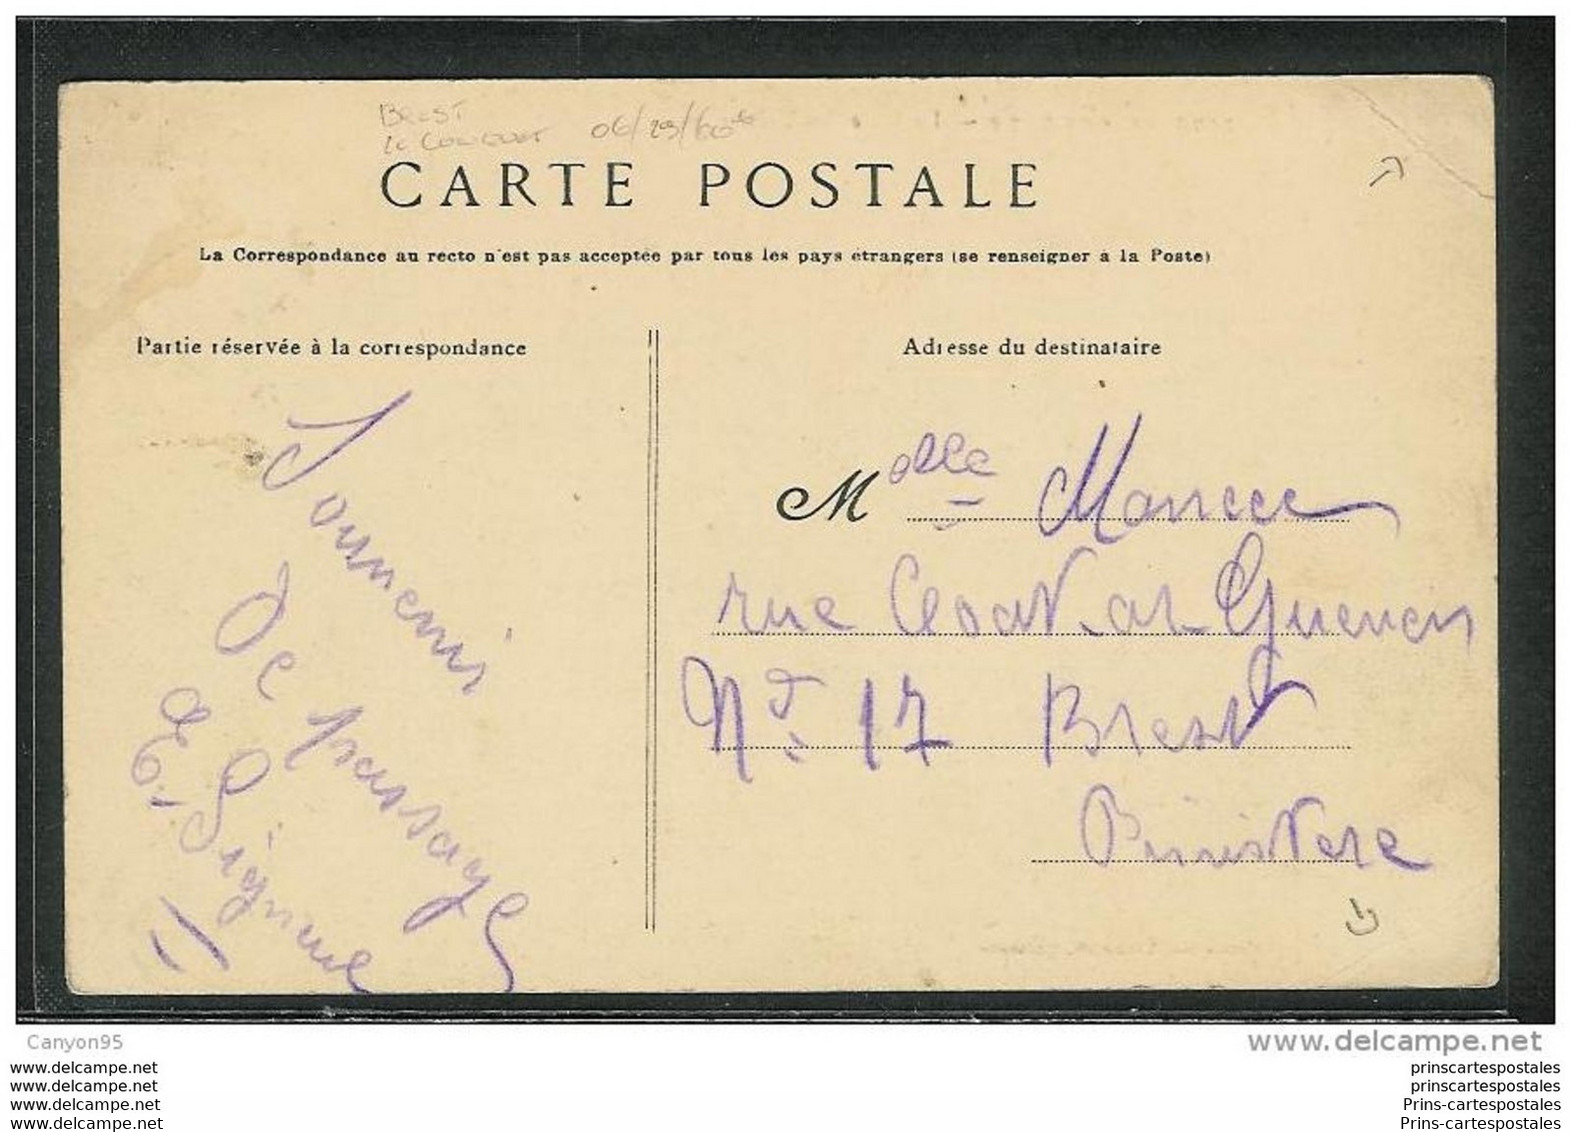 BREST
Le CONQUET 06/29/60
CARTE POSTALE
La Correspondance au recto n'est pas acceptée par tous les pays étrangers (se renseigner à la Poste)
Partie réservée à la correspondance
Souvenir
de passage
E. Signeul
Adresse du destinataire
Melle
rue
No 17 Brest
Finistere
Canyon95
www.delcampe.net
www.delcampe.net
www.delcampe.net
www.delcampe.net
www.delcampe.net
prinscartespostales
prinscartespostales
Prins-cartespostales
Prins-cartespostales